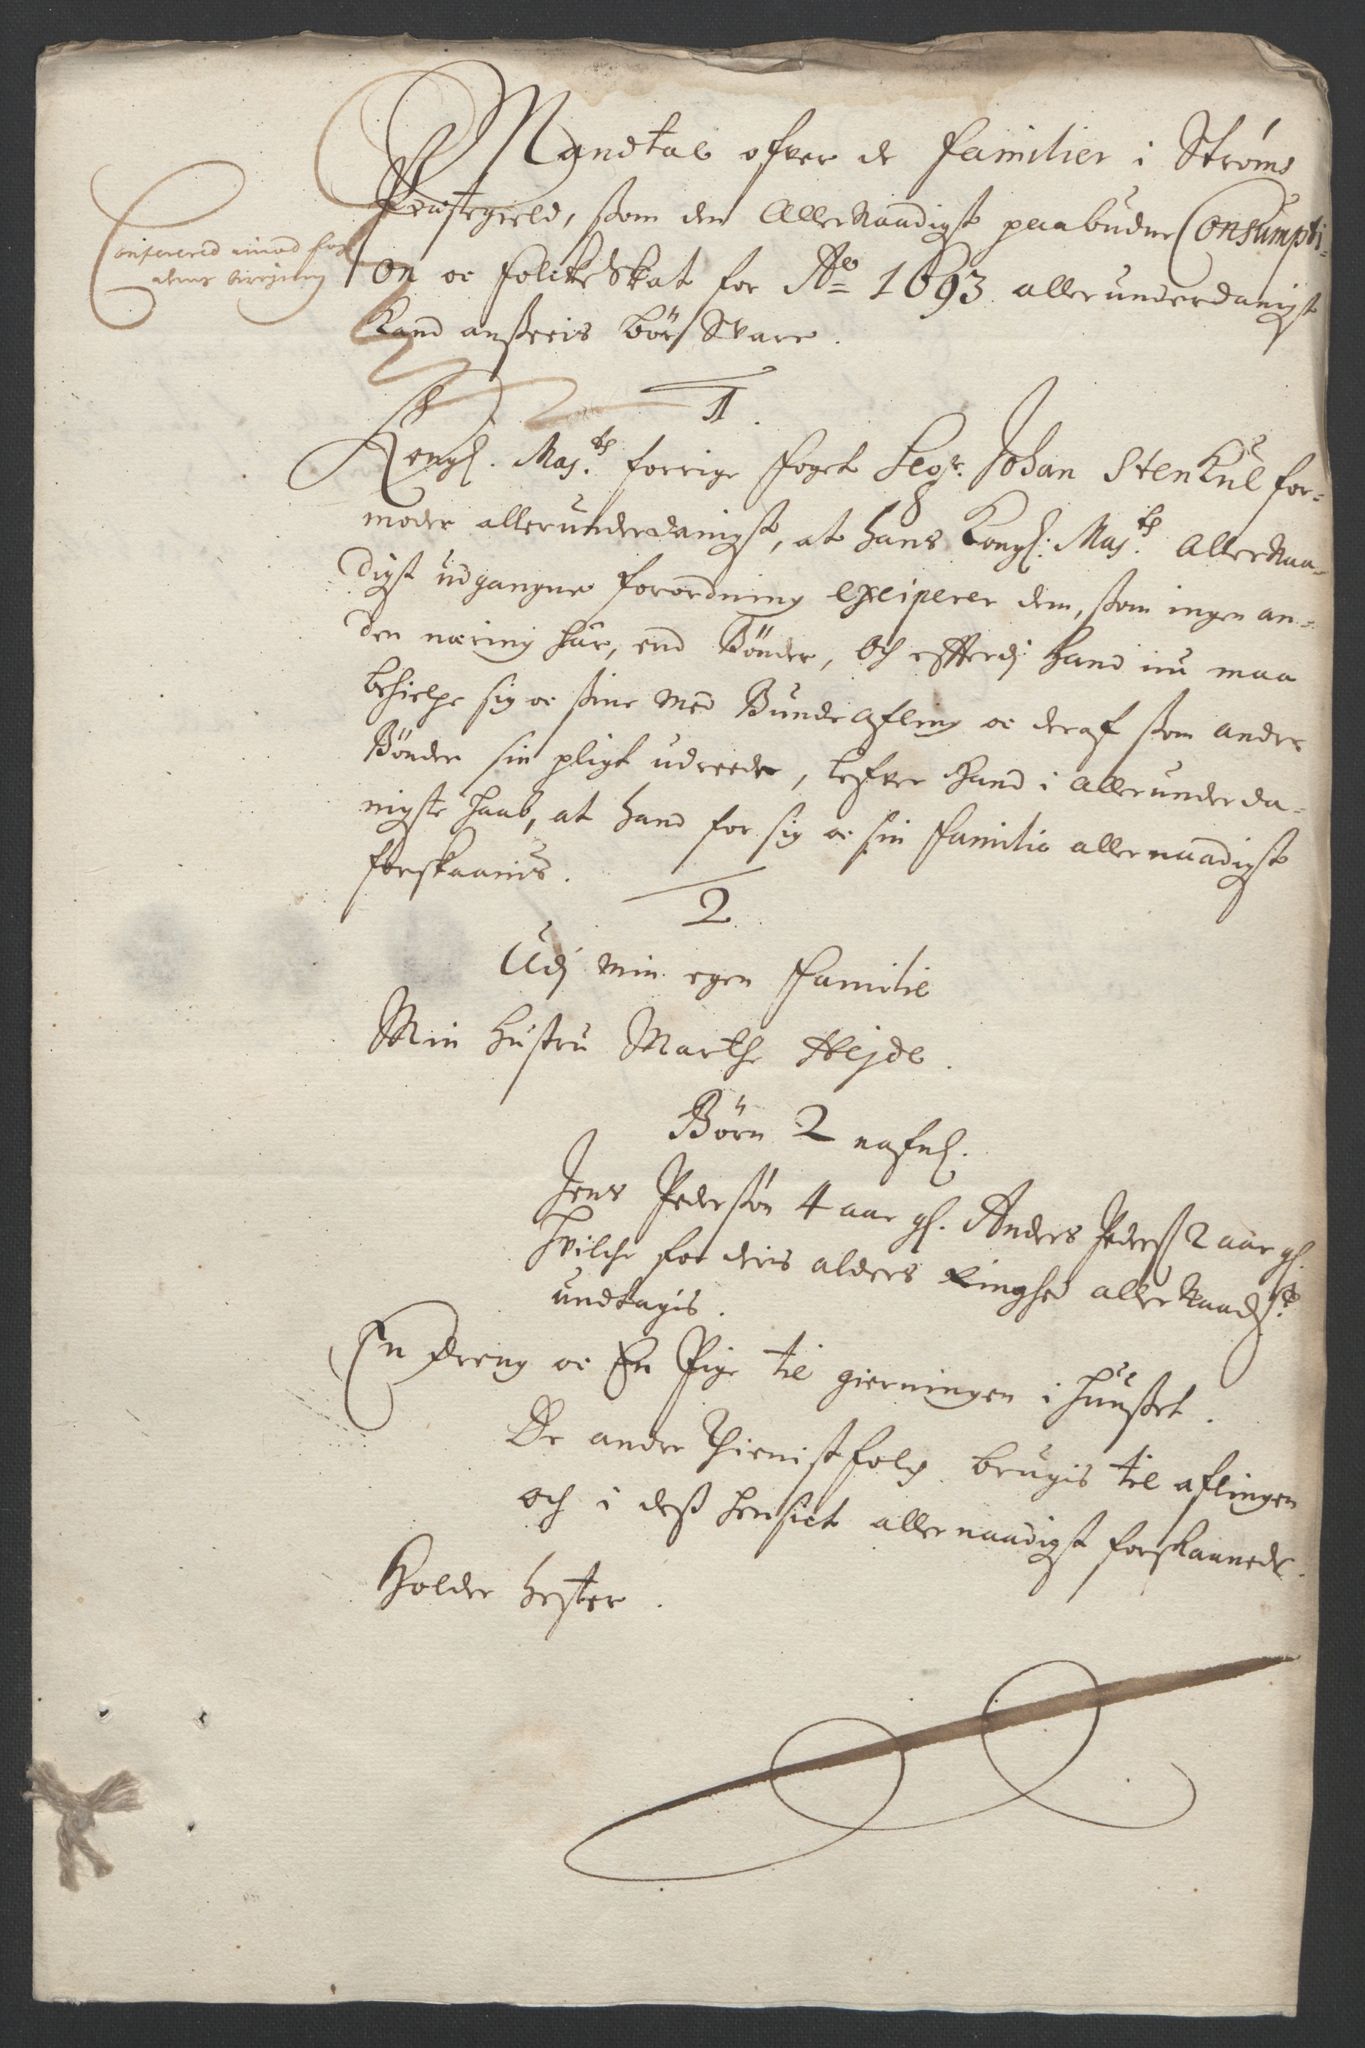 Mandtal ofver de Familier i Strøms
Præstegield, som den Allernaadigst paabudne Consumpti-
on oc folcke Skat for Ao 1693 allerunderdanigst
kand ansseeis bør Svare.
Confererid imod
1.
Kongl. Maj.ts forrige foget Seigr. Johan Stenkul for-
moder allerunderdanigst, at hans Kongl: Maj.ts Allernaa-
digst udgangne forordning exciperer dem, som ingen an-
den næring har, end Bønder, Och efftterdj hand nu maa
behielpe sig oc sine med Bunde afling oc deraf som andre
Bønder sin pligt udreeder, lefver hand i allerunderda-
nigste haab, at hand for sig oc sin familie allernaadigst
forskaanis.
2.
Udj min egen Familie
Min hustru Marthe Hejde.
Børn 2 nafnl.
Jens Pedersøn 4 aar gl. Anders Pederss 2 aar gl.
hvilche for deris alders Ringhed allernaadgst.
undtagis.
En dreng oc En Pige til gierningen i huusset.
De andre thienistfolch brugis til aflingen
och i dess hensict allernaadigst forskaanede.
Holder hester.